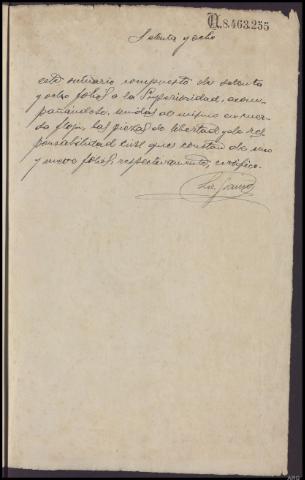 N.8.463.255
Setenta y ocho
este sumario compuesto de setenta
y ocho folios a la Superioridad, acom-
pañándole, unidas al mismo en cuer-
da floja, las piezas de libertad y de res
ponsabilidad civil que constan de uno
y nueve folios, respectivamente, certifico.